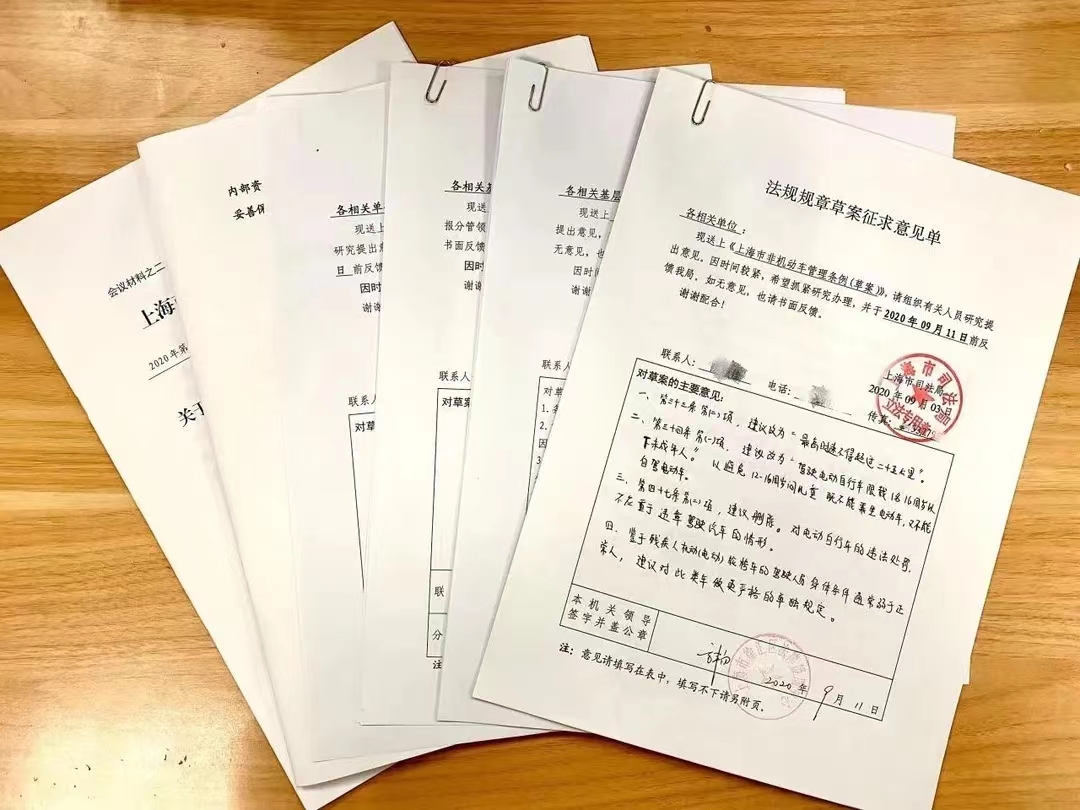 会议材料之二
上海
2020年第
关于
内部资
妥善保
各相关单
现送上
研究提出意
日 前反馈
因时
谢谢
联系人
对草案
各相关基
现送
报分管领
书面反馈
因时
谢谢
联系人
对草案
联
分
注
各相关基层
现送上
提出意见，
无意见，也
因时
谢谢
联系人
对草案
1.
2.
因
3.
法规规章草案征求意见单
各相关单位：
现送上《上海市非机动车管理条例(草案)》，请组织有关人员研究提
出意见，因时间较紧，希望抓紧研究办理，并于2020年09月11日前反
馈我局，如无意见，也请书面反馈。
谢谢配合！
联系人：
电话：
上海市司法局
2020年09月03日
传真：
市司法局
立法专用章
对草案的主要意见：
一、第三十三条第(二)项，建议改为“最高时速不得超过二十五公里”。
二、第三十四条第(一)项，建议改为“驾驶电动自行车限载1名16周岁以
下未成年人。”以避免12-16周岁间儿童既不能乘坐电动车，又不能
自驾电动车。
三、第四十七条第(二)项，建议删除。对电动自行车的违法处罚，
不应重于违章驾驶汽车的情形。
四、鉴于残疾人机动(电动)轮椅车的驾驶人员身体条件通常弱于正
常人，建议对此类车做更严格的单独规定。
本机关领导
签字并盖公章
2020年9月11日
注：意见请填写在表中，填写不下请另附页。